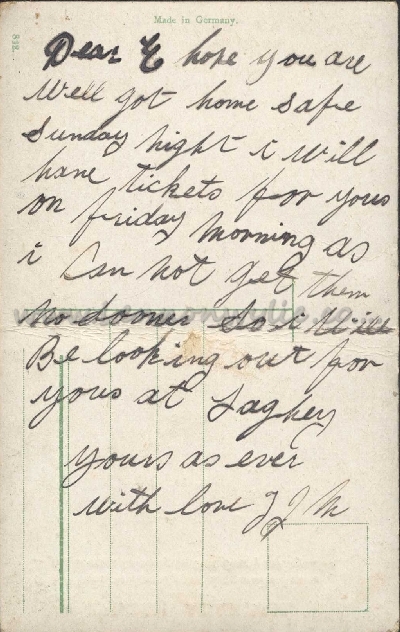 Made in Germany.
Dear E hope you are
well got home safe
Sunday night i will
have tickets for yous
on friday morning as
i Can not get them
no sooner So i Will
Be looking out for
yous at Laghey
yours as ever
with love J J M